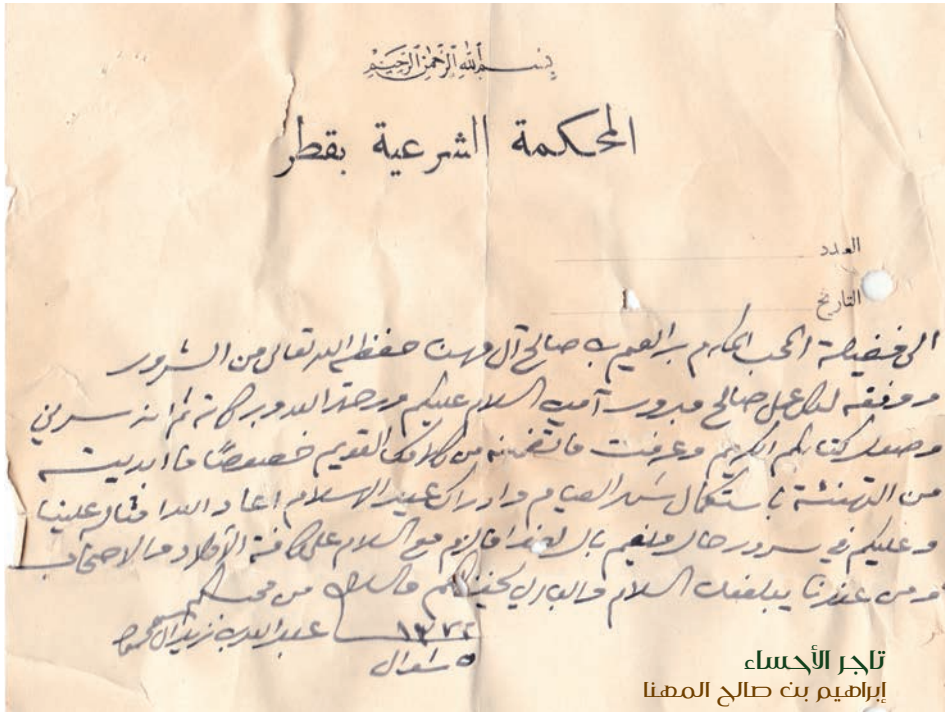 بسم الله الرحمن الرحيم
المحكمة الشرعية بقطر
العدد
التاريخ
الى فضيلة المحب المكرم ابراهيم بن صالح آل مهنا حفظه الله تعالى من الشرور
ووفقه لكل عمل صالح مبرور آمين السلام عليكم ورحمة الله وبركاته ثم انه سرني
وصول كتابكم الكريم وعرفت ما تضمنه من كلامك القويم خصوصًا ما ابديته
من التهنئة باستكمال شهر الصيام وادراك عيد الاسلام اعاد الله امثاله علينا
وعليكم في سرور حال بال هذا مع السلام على كافة الأولاد والاصحاب
ومن عندنا يبلغك السلام والباري يحفظكم والسلام من محبكم
١٣٧٢ عبدالله بن زيد آل محمود
٥ شوال
تاجر الأحساء
إبراهيم بن صالح المهنا